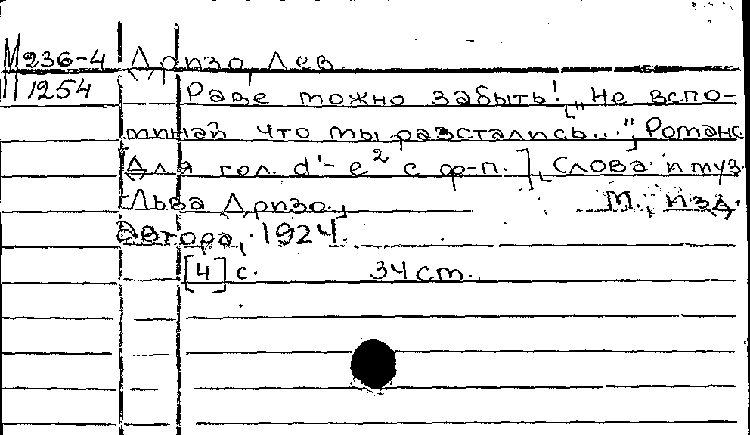 М 236-4 Дризо, Лев.
П 1254 Разве можно забыть! „Не вспо-
минай что мы разстались...", Романс
[Для гол. d'- e² с ф-п.], Слова и муз.
Льва Дризо.; М., изд.
автора, 1924.
[4] с. 34 cm.